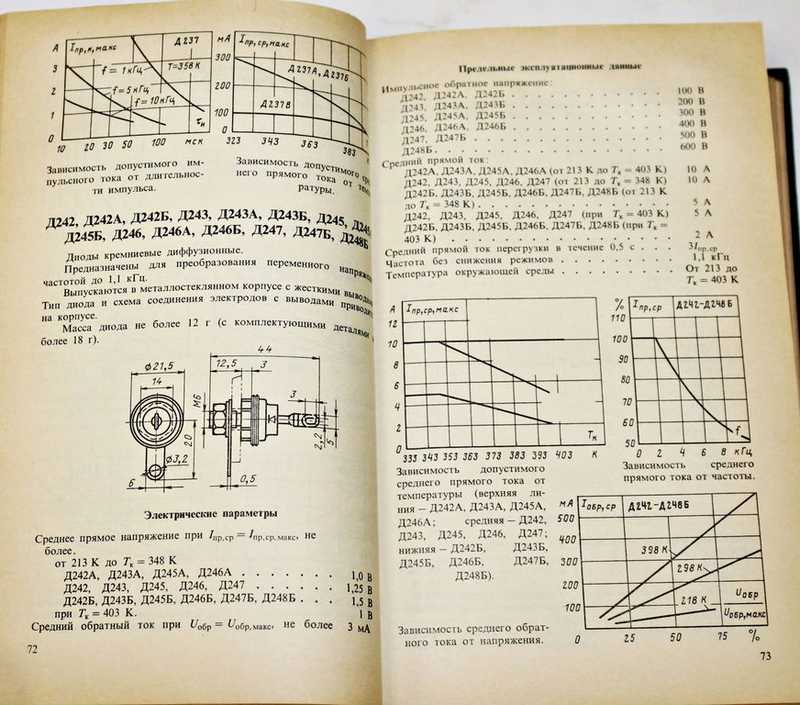 А
Iпр,и,макс
Д237
3
2
1
0
f = 1 кГц
T=358К
f=5кГц
f=10кГц
τи
10 20 30 50 100 мсК
Зависимость допустимого им-
пульсного тока от длительнос-
ти импульса.
мА
Iпр,ср,макс
300
200
100
0
Д237А, Д237Б
Д237В
323 343 363 383
Зависимость допустимого
него прямого тока от
ратуры.
Д242, Д242А, Д242Б, Д243, Д243А, Д243Б, Д245,
Д245Б, Д246, Д246А, Д246Б, Д247, Д247Б, Д248Б
Диоды кремниевые диффузионные.
Предназначены для преобразования переменного
частотой до 1,1 кГц.
Выпускаются в металлостеклянном корпусе с жесткими
Тип диода и схема соединения электродов с выводами
на корпусе.
Масса диода не более 12 г (с комплектующими деталями
более 18 г).
44
ϕ21,5
12,5
3
14
М6
3
20
ϕ3,2
2,2
5
6
0,5
Электрические параметры
Среднее прямое напряжение при Iпр,ср = Iпр,ср,макс, не
более.
от 213 К до Tк = 348 К
Д242А, Д243А, Д245А, Д246А . . . . . . . 1,0 В
Д242, Д243, Д245, Д246, Д247 . . . . . . 1,25 В
Д242Б, Д243Б, Д245Б, Д246Б, Д247Б, Д248Б . . . 1,5 В
при Tк = 403 К. 1 В
Средний обратный ток при Uобр = Uобр,макс, не более 3 мА
72
Предельные эксплуатационные данные
Импульсное обратное напряжение:
Д242, Д242А, Д242Б . . . . . . . . . . 100 В
Д243, Д243А, Д243Б . . . . . . . . . . 200 В
Д245, Д245А, Д245Б . . . . . . . . . . 300 В
Д246, Д246А, Д246Б . . . . . . . . . . 400 В
Д247, Д247Б . . . . . . . . . . 500 В
Д248Б . . . . . . . . . . 600 В
Средний прямой ток:
Д242А, Д243А, Д245А, Д246А (от 213 К до Tк = 403 К) 10 А
Д242, Д243, Д245, Д246, Д247 (от 213 до Tк = 348 К) 10 А
Д242Б, Д243Б, Д245Б, Д246Б, Д247Б, Д248Б (от 213 К
до Tк = 348 К) . . . . . . . . . . 5 А
Д242, Д243, Д245, Д246, Д247 (при Tк = 403 К) 5 А
Д242Б, Д243Б, Д245Б, Д246Б, Д247Б, Д248Б (при Tк =
403 К) . . . . . . . . . . 2 А
Средний прямой ток перегрузки в течение 0,5 с . . . 3Iпр,ср
Частота без снижения режимов . . . . . . . . . 1,1 кГц
Температура окружающей среды . . . . . . . . . От 213 до
Tк = 403 К
А
Iпр,ср,макс
12
10
8
6
4
2
0
Tк
333 343 353 363 373 383 393 403 К
Зависимость допустимого
среднего прямого тока от
температуры (верхняя ли-
ния – Д242А, Д243А, Д245А,
Д246А; средняя – Д242,
Д243, Д245, Д246, Д247;
нижняя – Д242Б, Д243Б,
Д245Б, Д246Б, Д247Б,
Д248Б).
%
Iпр,ср
Д242-Д248Б
110
100
90
80
70
60
50
f
0 2 4 6 8 кГц
Зависимость среднего
прямого тока от частоты.
мА
Iобр,ср
Д242-Д248Б
500
400
300
200
100
398 К
298 К
218 К
Uобр
Uобр,макс
0 25 50 75 %
Зависимость среднего обрат-
ного тока от напряжения.
73